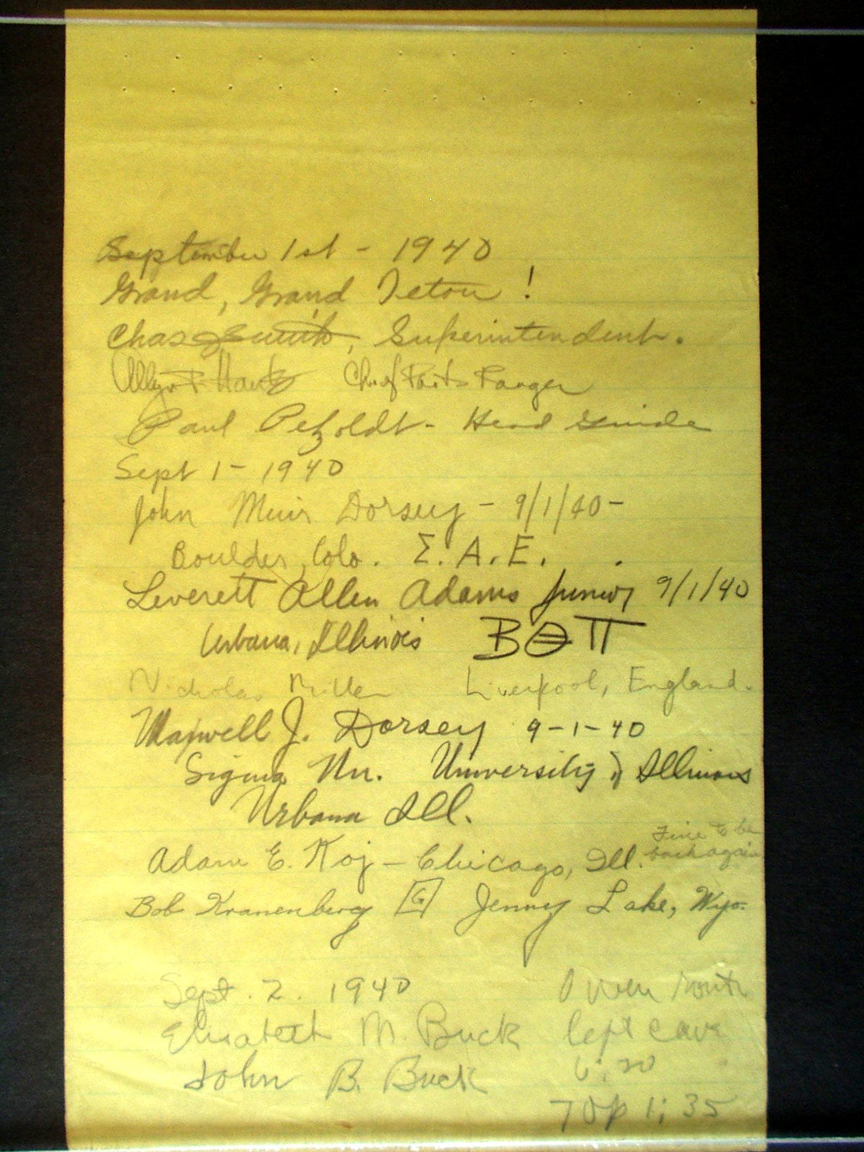 September 1st - 1940
Grand, Grand Teton !
Chas Smith, Superintendent.
Allyn F. Hanks Chief Park Ranger
Paul Petzoldt - Head Guide
Sept 1 - 1940
John Muir Dorsey - 9/1/40 -
Boulder, Colo. Σ. A. E.
Leverett Allen Adams Junior 9/1/40
Urbana, Illinois BΘΠ
Nicholas Miller Liverpool, England.
Maxwell J. Dorsey 9-1-40
Sigma Nu. University of Illinois
Urbana Ill.
Adam E. Koj - Chicago, Ill. Fine to be back again
Bob Kranenberg G Jenny Lake, Wyo.
Sept. 2. 1940 Owen route
Elizabeth M. Buck left cave
John B. Buck 6:20
Top 1:35